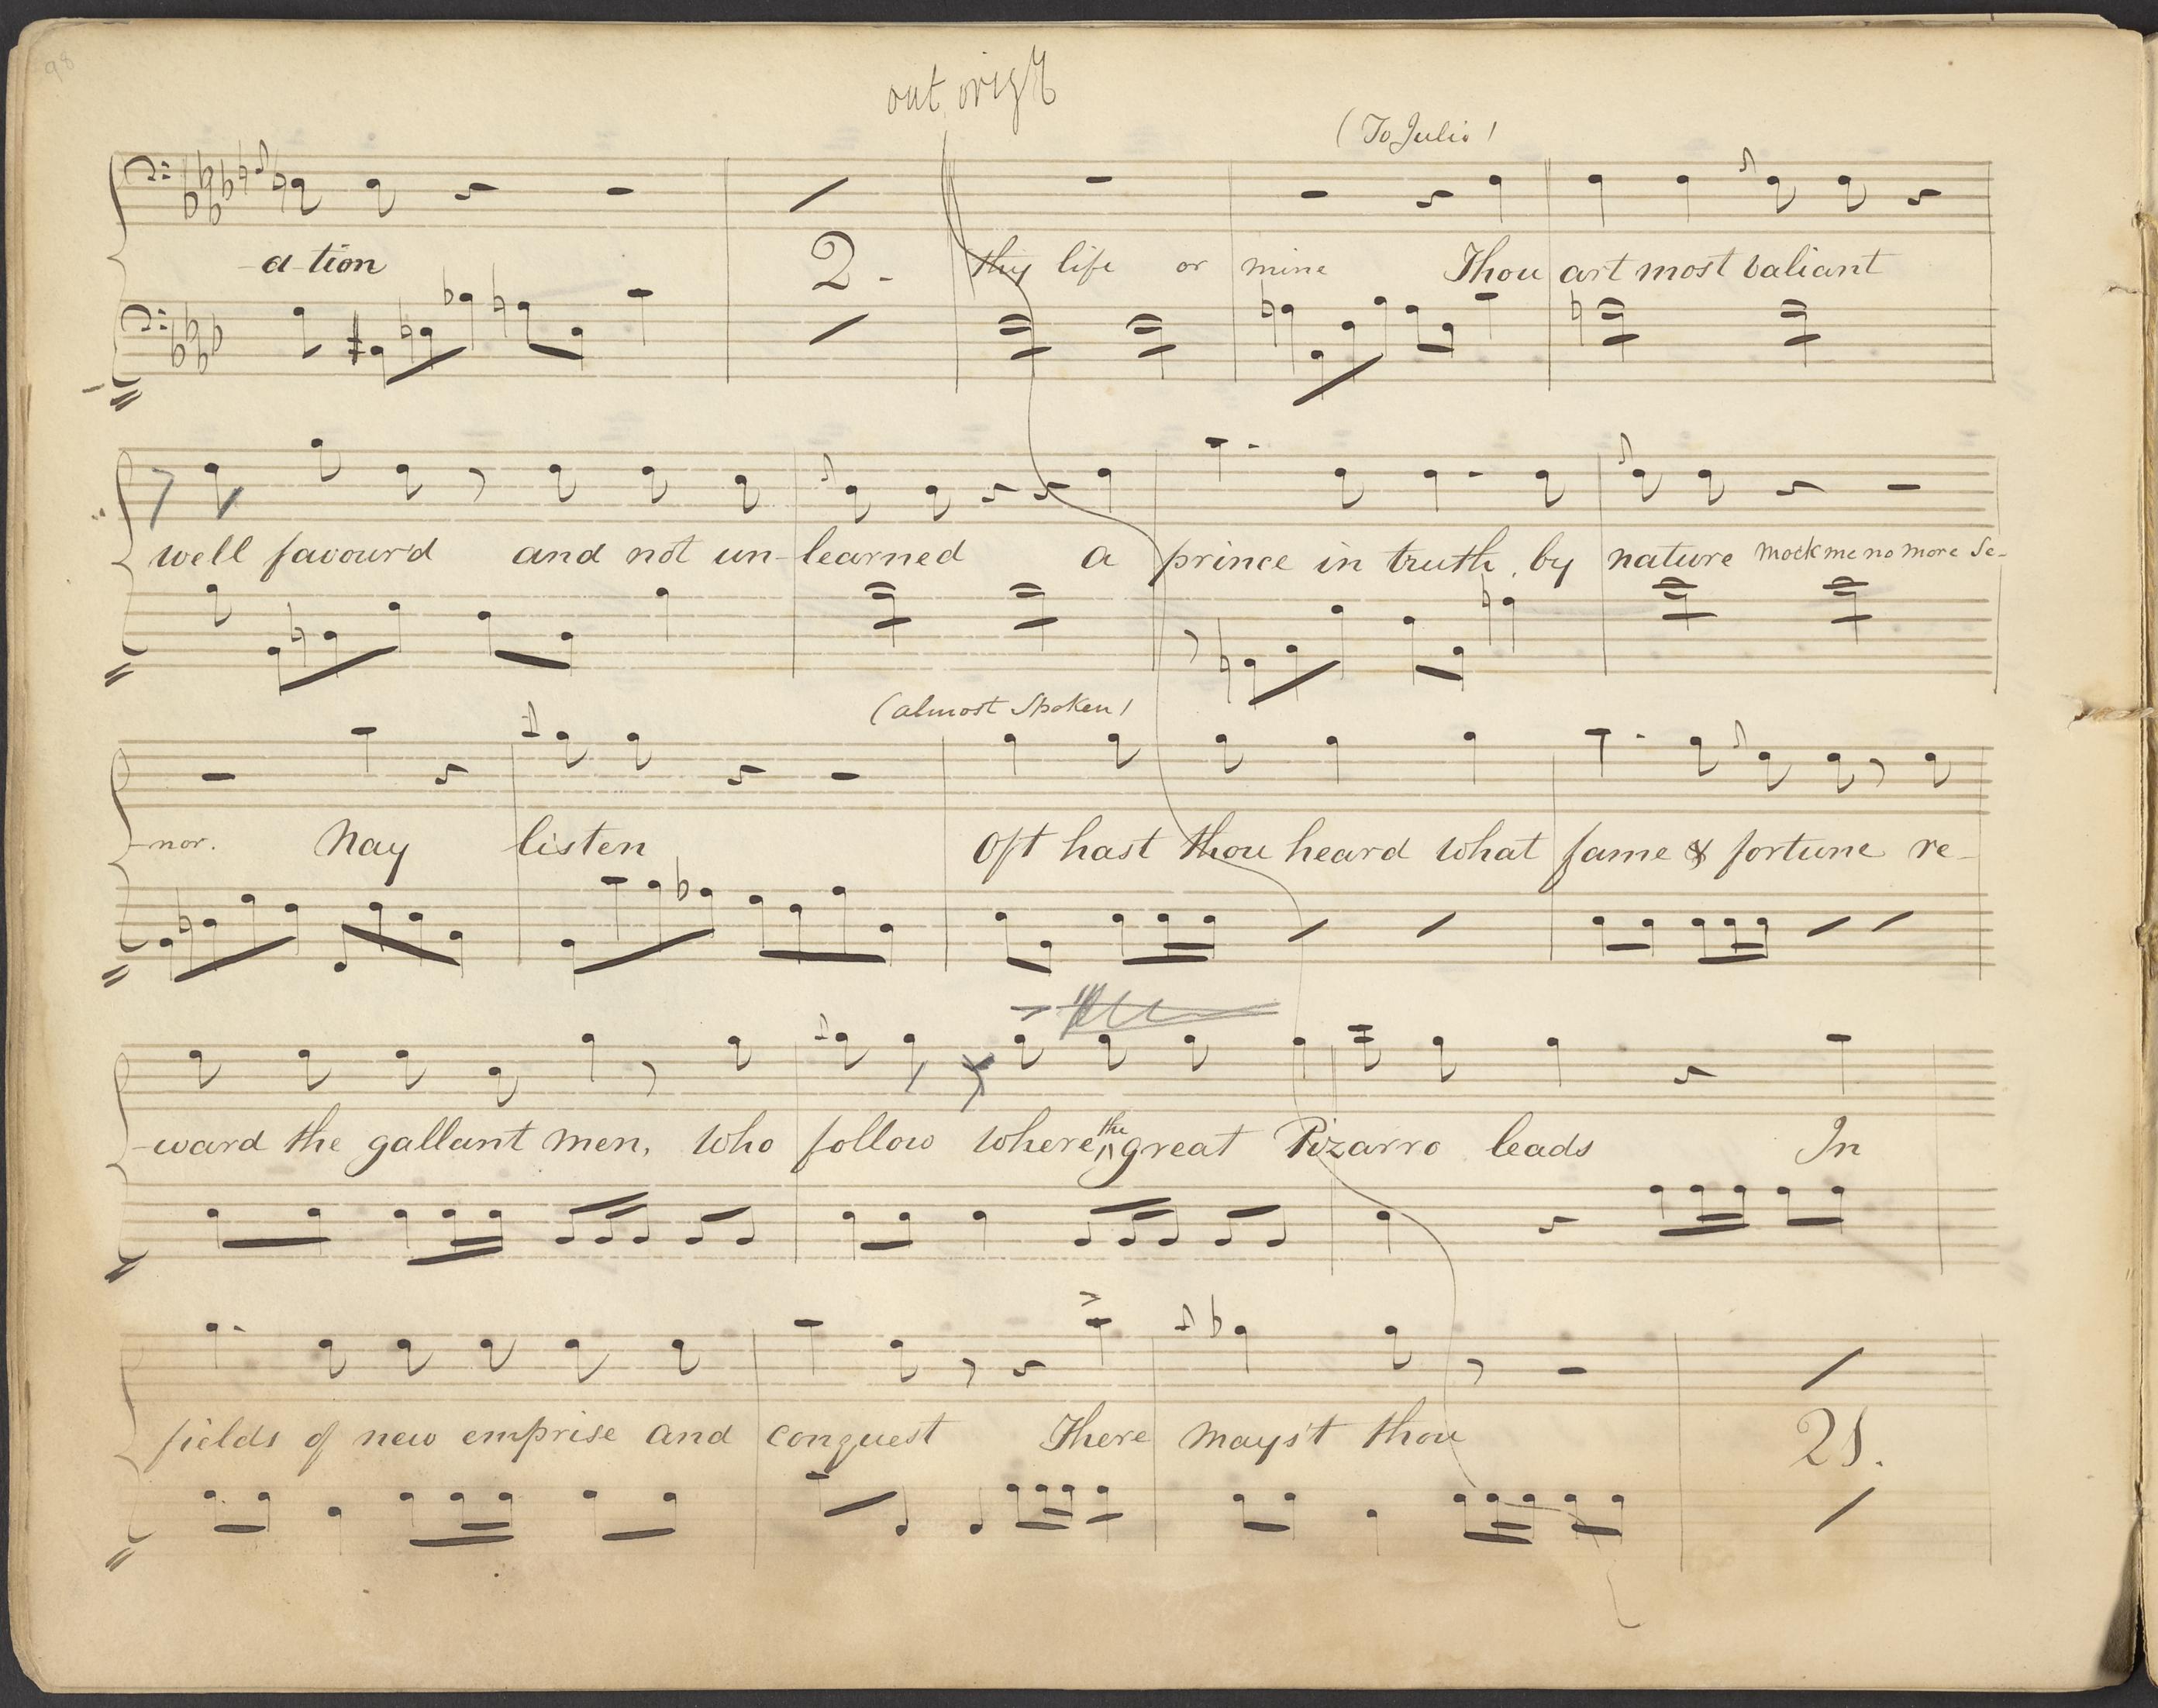 98
out orig
(To Julio)
-a-tion 2. thy life or mine Thou art most valiant
well favour'd and not un-learned a prince in truth, by nature mock me no more Se-
(almost spoken)
-nor. Nay listen Oft hast thou heard what fame & fortune re-
-ward the gallant men, who follow where the great Pizarro leads In
fields of new emprise and conquest There mays't thou 21.